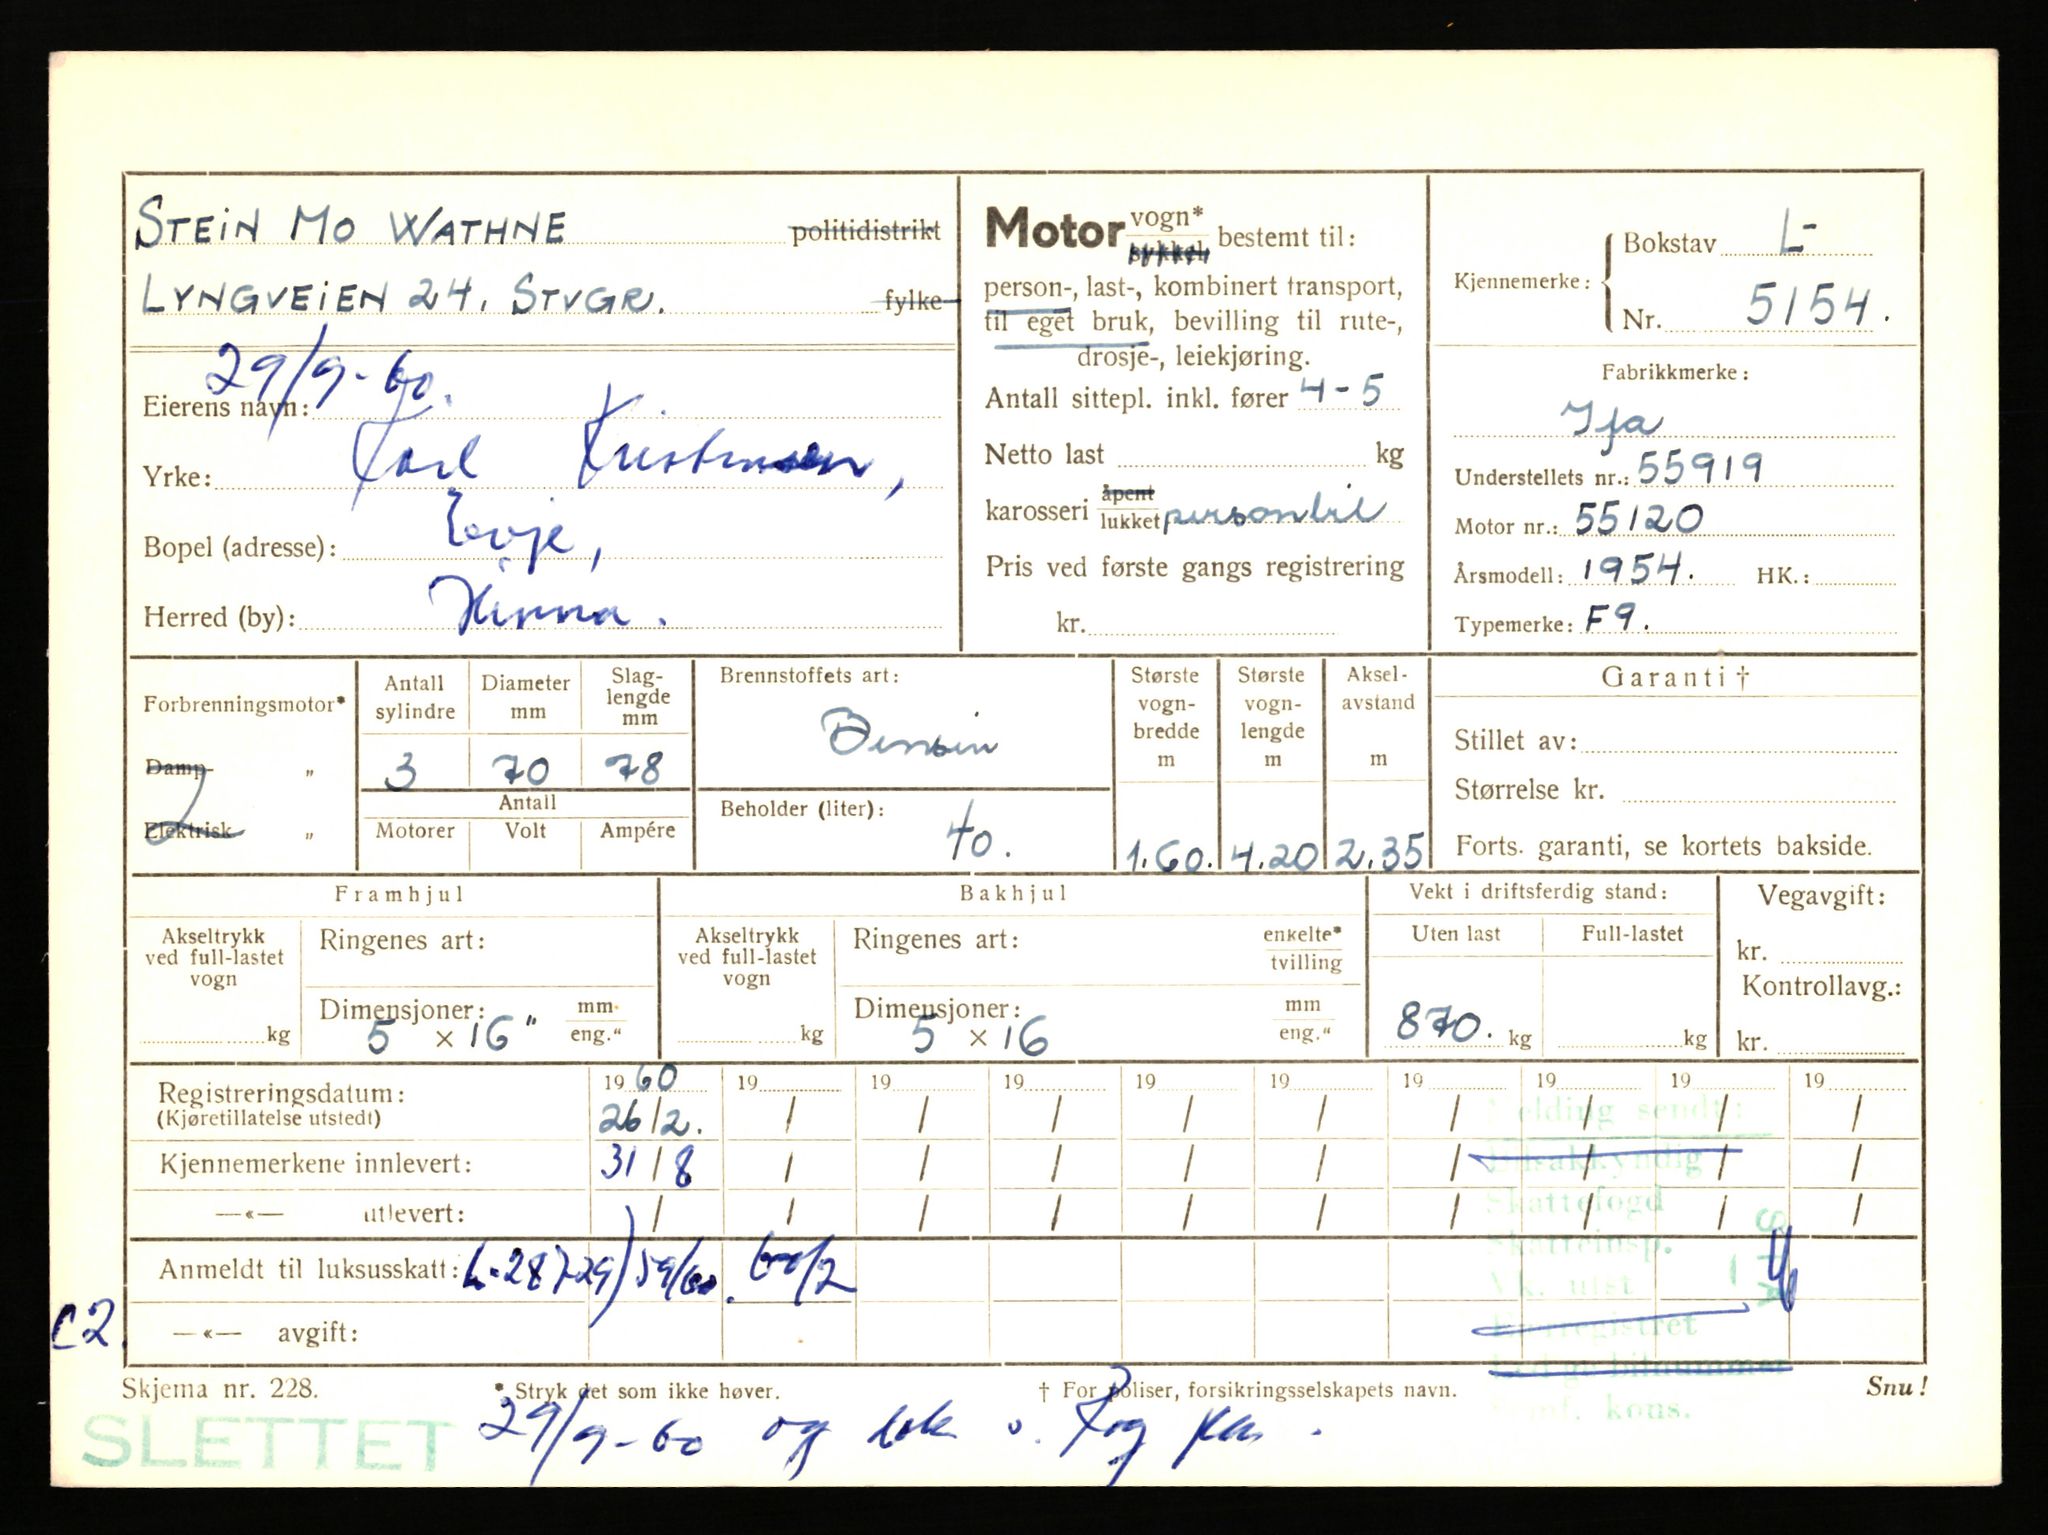 STEIN MO WATHNE politidistrikt
LYNGVEIEN 24, STVGR. fylke
29/9-60.
Eierens navn:
Karl Kristensen,
Yrke:
Bopel (adresse):
Herred (by): Hinna.
Motor vogn* sykkel bestemt til:
person-, last-, kombinert transport,
til eget bruk, bevilling til rute-,
drosje-, leiekjøring.
Antall sittepl. inkl. fører 4-5
Netto last kg
karosseri åpent lukket personbil
Pris ved første gangs registrering
kr.
Kjennemerke: Bokstav L-
Nr. 5154.
Fabrikkmerke:
Ifa
Understellets nr.: 55919
Motor nr.: 55120
Årsmodell: 1954. HK.:
Typemerke: F9.
Forbrenningsmotor*
Damp "
Elektrisk "
2
Antall sylindre
3
Diameter mm
70
Slag-
lengde
mm
78
Antall
Motorer Volt Ampére
Brennstoffets art:
Bensin
Beholder (liter):
40.
Største
vogn-
bredde
m
1.60.
Største
vogn-
lengde
m
4.20
Aksel-
avstand
m
2.35
Garanti †
Stillet av:
Størrelse kr.
Forts. garanti, se kortets bakside.
Framhjul
Akseltrykk
ved full-lastet
vogn
kg
Ringenes art:
Dimensjoner: mm
5 × 16" eng."
Bakhjul
Akseltrykk
ved full-lastet
vogn
kg
Ringenes art: enkelte*
tvilling
Dimensjoner: mm
5 × 16 eng."
Vekt i driftsferdig stand:
Uten last Full-lastet
870. kg kg
Vegavgift:
kr.
Kontrollavg.:
kr.
Registreringsdatum: 1960 19 19 19 19 19 19 19 19 19
(Kjøretillatelse utstedt) 26/2. / / / / / / / / /
Kjennemerkene innlevert: 31/8 / / / / / / / / /
—«— utlevert: / / / / / / / / / /
Anmeldt til luksusskatt: L-28729) 59/60. 60/2
C2.
—«— avgift:
Melding sendt:
Bilsakkyndig
Skattefogd
Skatteinsp.
Vk. utst
Skjema nr. 228. * Stryk det som ikke høver. † For poliser, forsikringsselskapets navn. Snu!
SLETTET
29/9-60 og